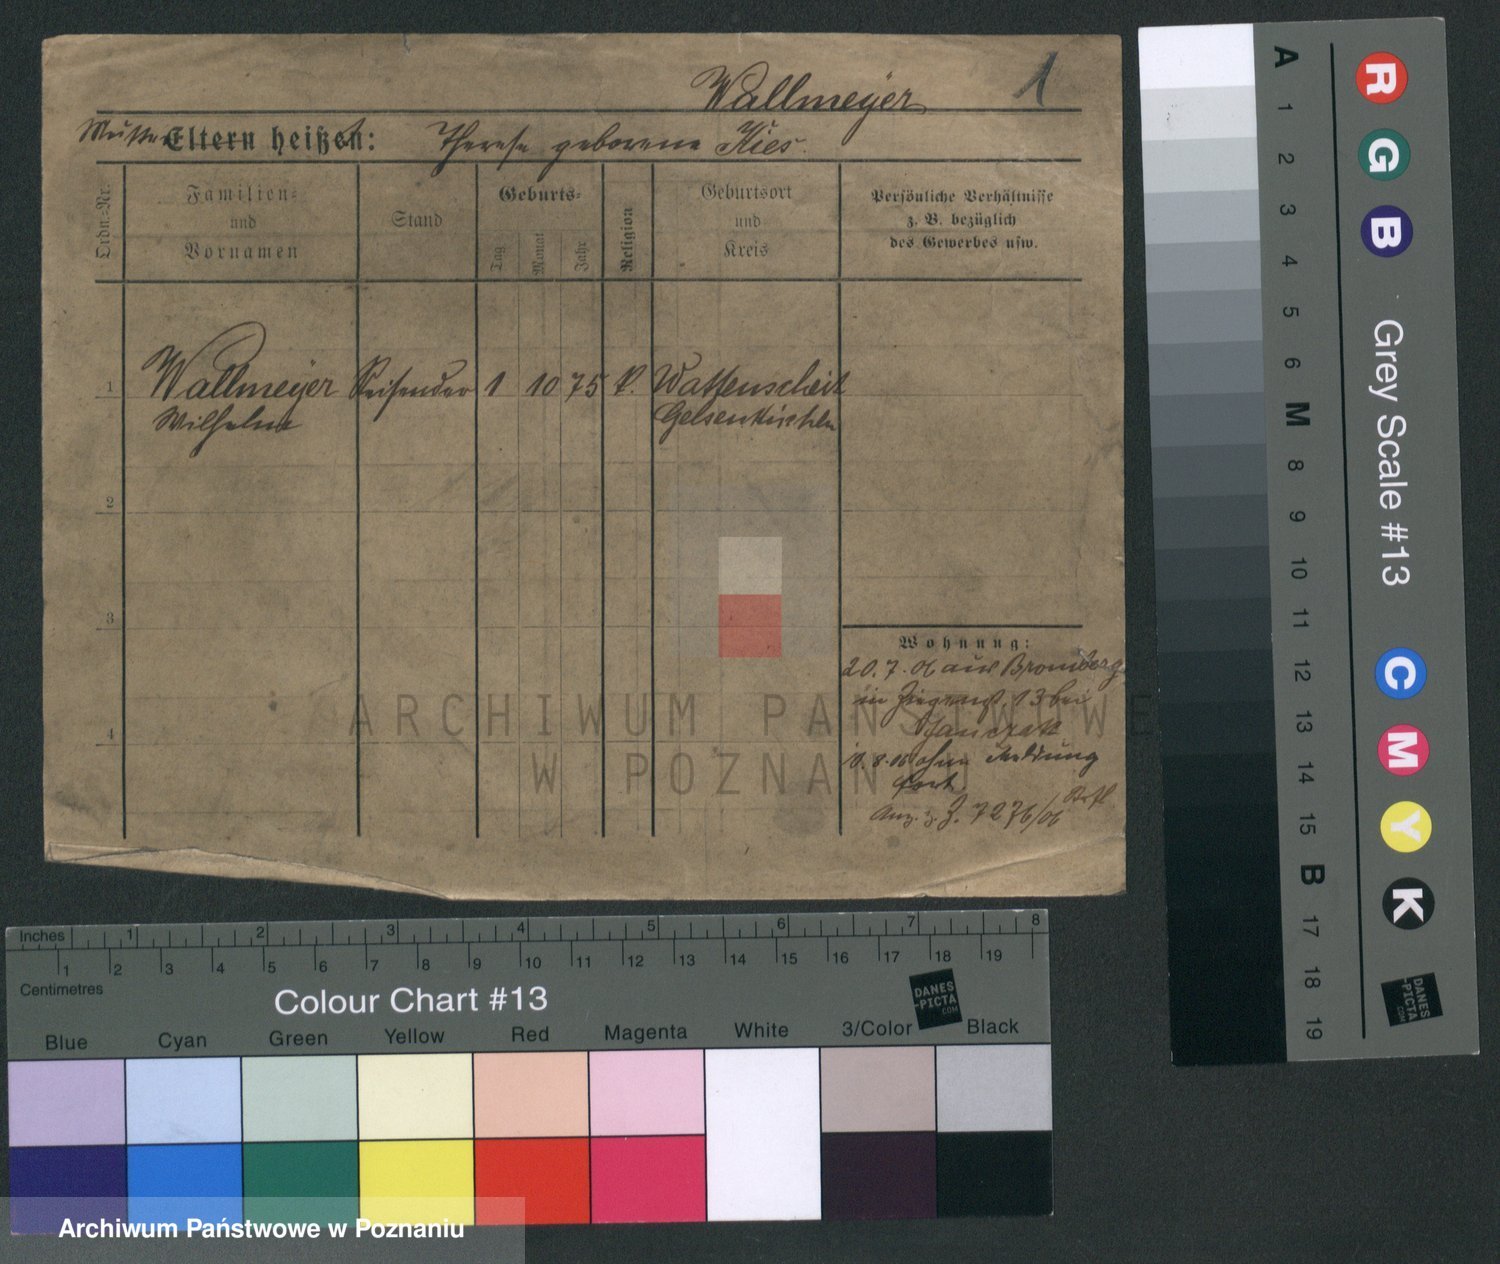 Wallmeyer
1
Mutter Eltern heißen: Therese geborene Kies.
Ordn.-Nr.
Familien-
und
Vornamen
Stand
Geburts-
Tag
Monat
Jahr
Religion
Geburtsort
und
Kreis
Persönliche Verhältnisse
z. B. bezüglich
des Gewerbes usw.
1 Wallmeyer Reisender 1 10 75 k. Wattenscheit
Wilhelm Gelsenkirchen
2
3
4
Wohnung:
20. 7. 06 aus Bromberg
in 13 bei
10. 8. 06 ohne Meldung
fort.
Anz. z. J. 7276/06
ARCHIWUM PAŃSTWOWE
W POZNANIU
A 1 2 3 4 5 6 M 8 9 10 11 12 13 14 15 B 17 18 19
R G B
Grey Scale #13
C M Y K
DANES
-PICTA
.COM
Inches 1 2 3 4 5 6 7 8
1 2 3 4 5 6 7 8 9 10 11 12 13 14 15 16 17 18 19
Centimetres
Colour Chart #13
DANES
-PICTA
.COM
Blue Cyan Green Yellow Red Magenta White 3/Color Black
Archiwum Państwowe w Poznaniu